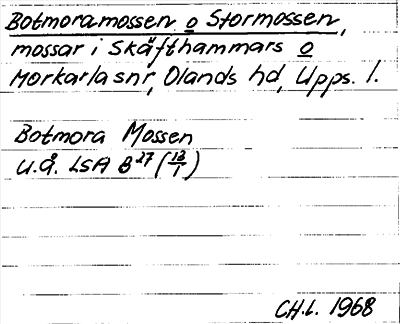 Botmoramossen o Stormossen,
mossar i Skäfthammars o
Morkarla snr, Olands hd, Upps. l.
Botmora Mossen
u.å. LSA B 27 (12/1)
CH.L. 1968